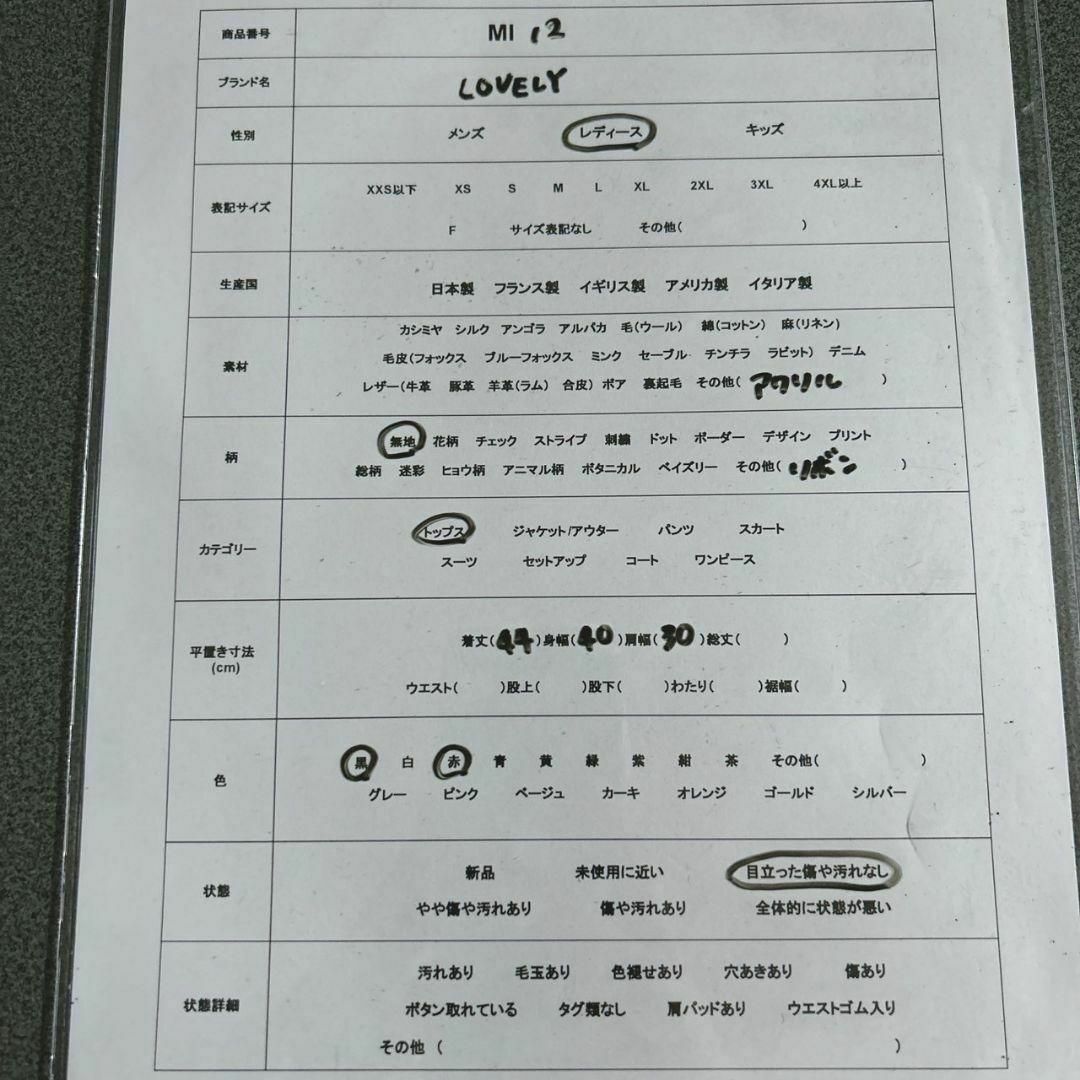 商品番号 MI 12
ブランド名 LOVELY
性別 メンズ レディース キッズ
表記サイズ XXS以下 XS S M L XL 2XL 3XL 4XL以上
F サイズ表記なし その他( )
生産国 日本製 フランス製 イギリス製 アメリカ製 イタリア製
素材 カシミヤ シルク アンゴラ アルパカ 毛(ウール) 綿(コットン) 麻(リネン)
毛皮(フォックス ブルーフォックス ミンク セーブル チンチラ ラビット) デニム
レザー(牛革 豚革 羊革(ラム) 合皮) ボア 裏起毛 その他( アクリル )
柄 無地 花柄 チェック ストライプ 刺繍 ドット ボーダー デザイン プリント
総柄 迷彩 ヒョウ柄 アニマル柄 ボタニカル ペイズリー その他( リボン )
カテゴリー トップス ジャケット/アウター パンツ スカート
スーツ セットアップ コート ワンピース
平置き寸法 着丈( 44 )身幅( 40 )肩幅( 30 )総丈( )
(cm) ウエスト( )股上( )股下( )わたり( )裾幅( )
色 黒 白 赤 青 黄 緑 紫 紺 茶 その他( )
グレー ピンク ベージュ カーキ オレンジ ゴールド シルバー
状態 新品 未使用に近い 目立った傷や汚れなし
やや傷や汚れあり 傷や汚れあり 全体的に状態が悪い
状態詳細 汚れあり 毛玉あり 色褪せあり 穴あきあり 傷あり
ボタン取れている タグ類なし 肩パッドあり ウエストゴム入り
その他 ( )